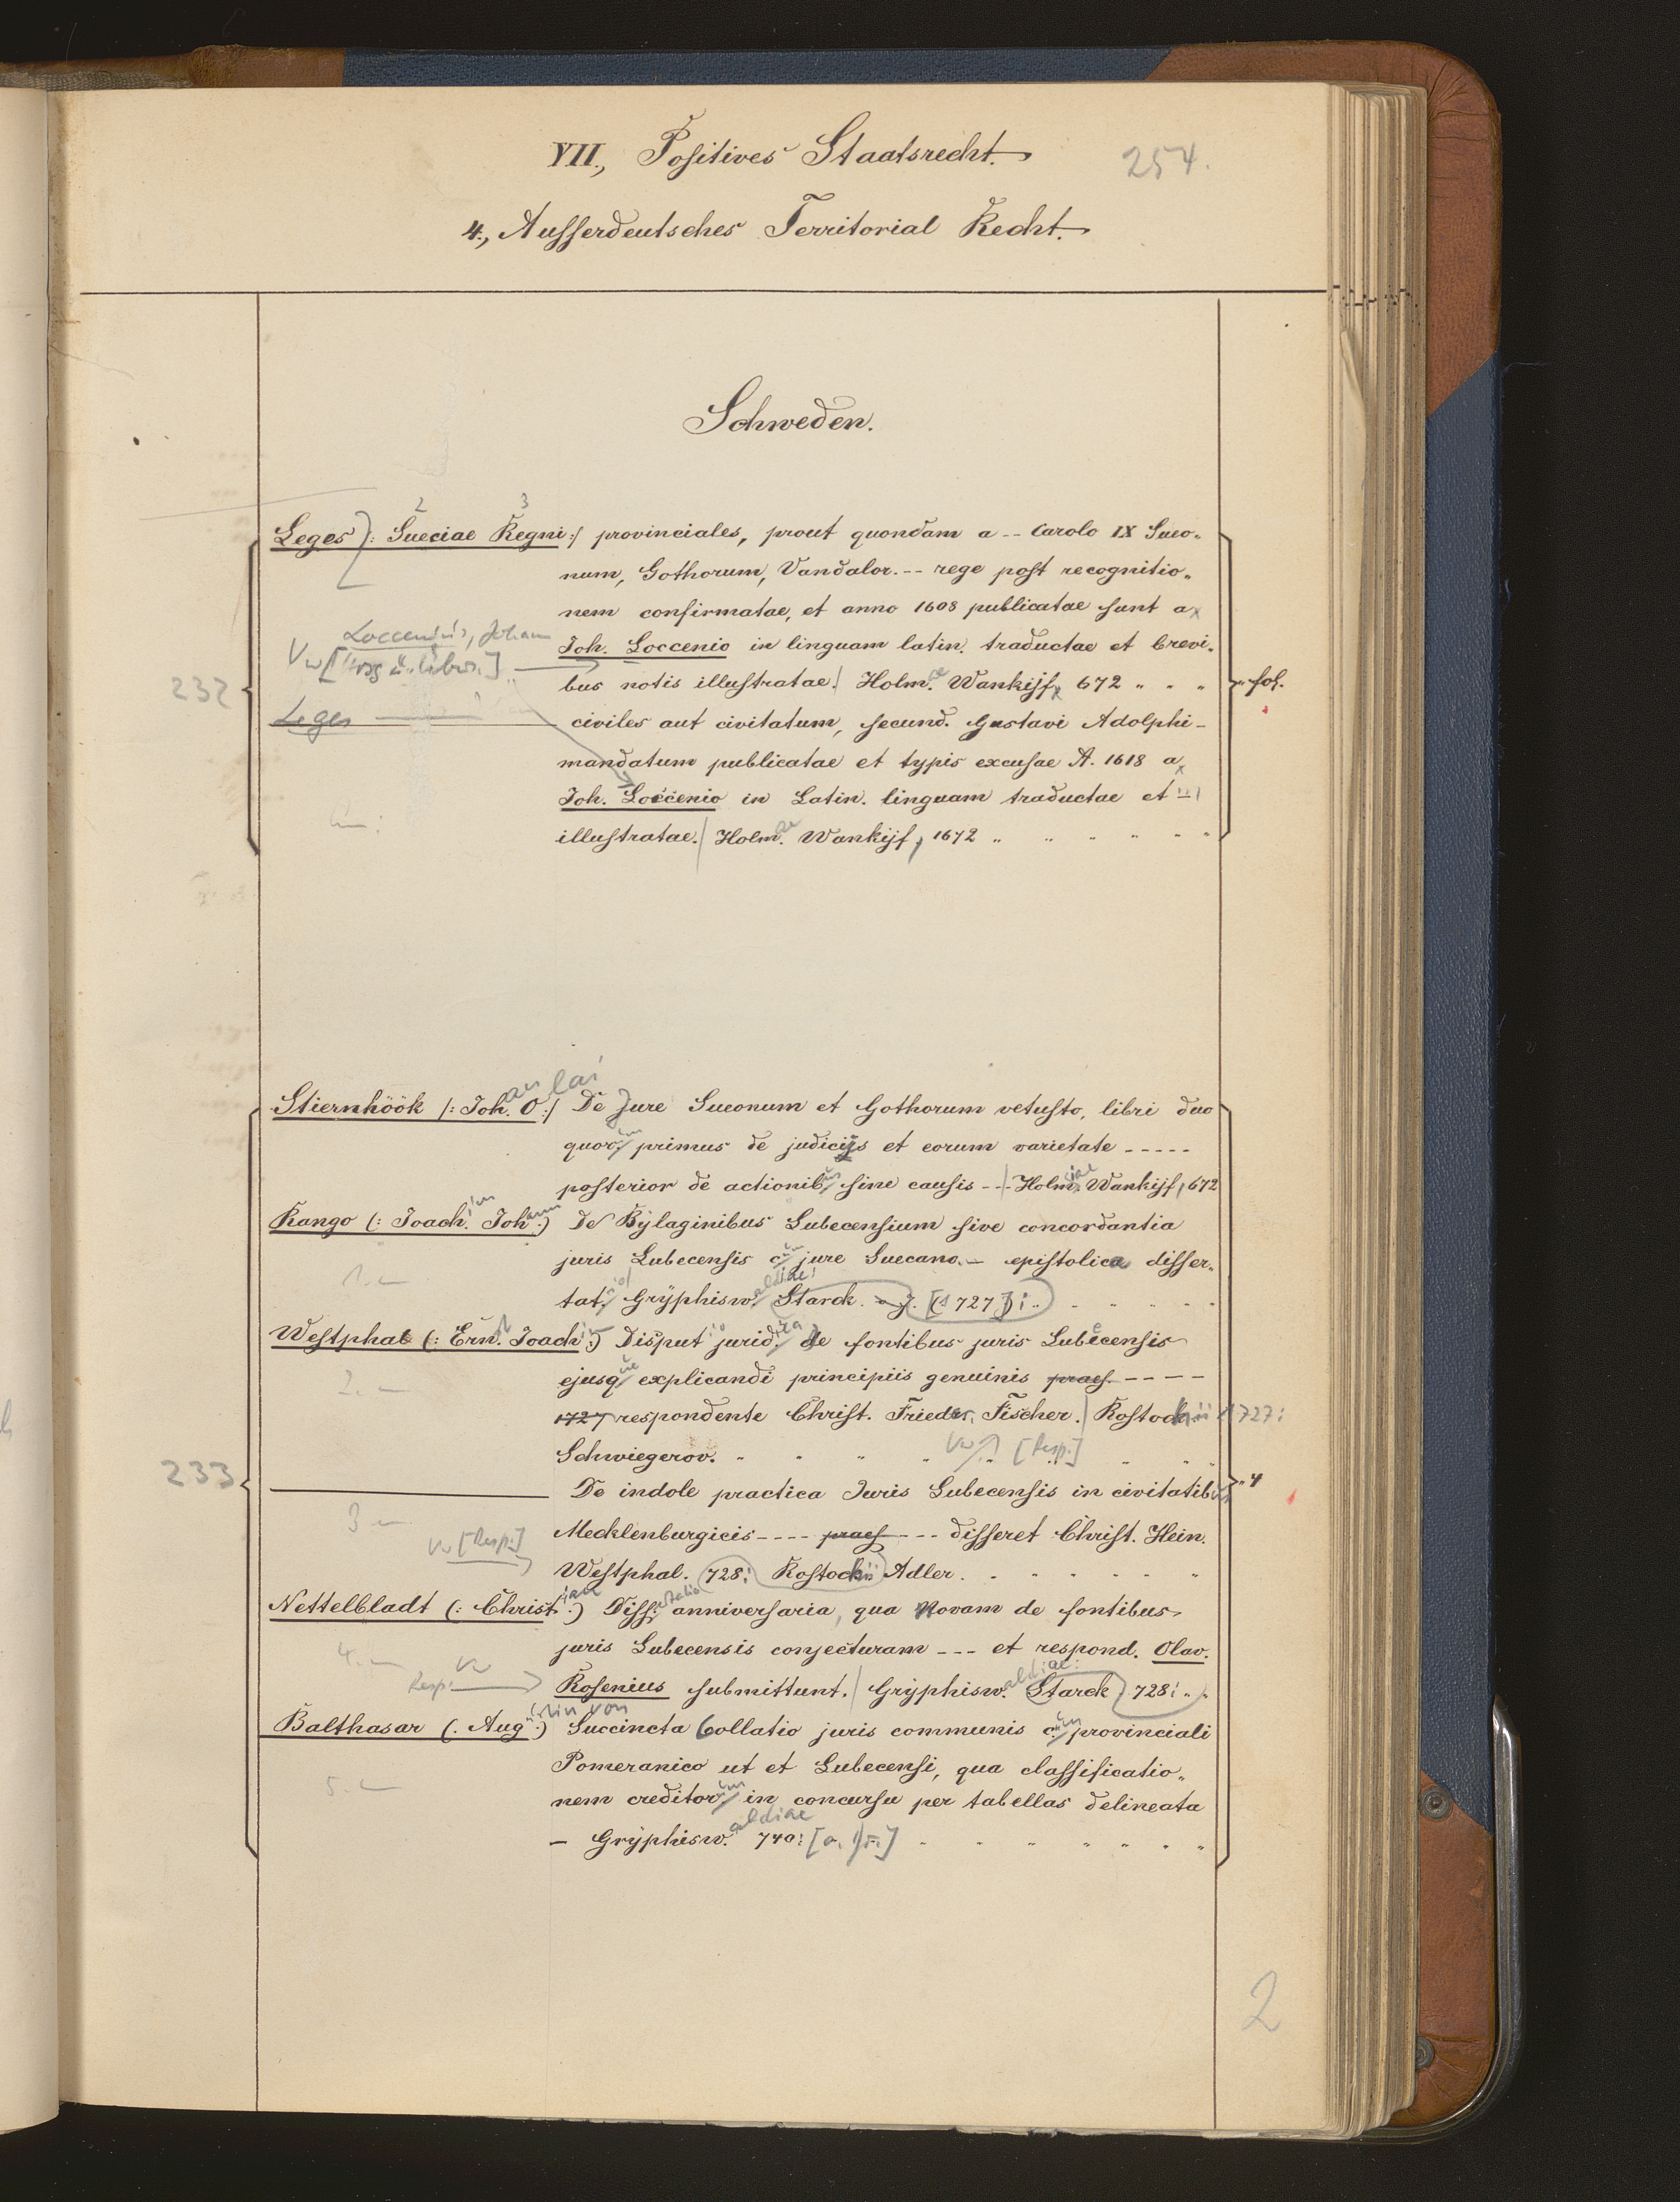 VII., Positives Staatsrecht.
254.
4., Ausserdeutsches Territorial Recht.
Schweden.
2 3
Leges /: Sueciae Regni :/ provinciales, prout quondam a -- Carolo IX Sueo„
num, Gothorum, Vandalor. -- rege post recognitio„
nem confirmatae, et anno 1608 publicatae sunt a
Loccenius, Johann
Joh. Loccenio in linguam latin. traductae et brevi„
Vw
232
bus notis illustratae. Holm.ae Wankijf, 672 „ „ „
„ fol.
Leges ——— civiles aut civitatum, secund. Gustavi Adolphi-
mandatum publicatae et typis excusae A. 1618 a
Joh. Loccenio in Latin. linguam traductae et
illustratae. Holm.ae Wankijf, 1672 „ „ „ „ „ „
Stiernhöök /: Joh.an O.lai :/ De Jure Sueonum et Gothorum vetusto, libri duo
quor.um primus de judicijs et eorum varietate -----
posterior de actionib.us sine causis --- Holm.iae Wankijf, 672
Rango (: Joach.im Joh.ann :) De Bÿlaginibus Lubecensium sive concordantia
juris Lubecensis c.um jure Suecano. — epistolica disser„
1.
tat.io Grÿphisw.aldiae: Starck. [(1727)] : „
Westphal (: Ern.st Joach.im :) Disput.io jurid.ica de fontibus juris Lubecensis
2.
ejusq.ue explicandi principiis genuinis praes. ----
1727 respondente Christ. Frieder. Fischer. Rostochii 1727:
Schwiegerov. „ „ „ „ „ „ „
Vw [Resp.]
233
——— De indole practica Juris Lubecensis in civitatibus
„ 4
3
Mecklenburgicis ---- praes --- disseret Christ. Hein.
Vw [Resp.]
Westphal. 728: Rostochii Adler. „ „ „ „ „ „
Nettelbladt (: Christ.ian :) Diss.ertatio anniversaria, qua Novam de fontibus
4.
juris Lubecensis conjecturam --- et respond. Olav.
Vw
Resp.
Rosenius submittunt. Grÿphisw.aldiae: Starck 728: „ „
Balthasar (: Aug.ustin von :) Succincta Collatio juris communis c.um provinciali
Pomeranico ut et Lubecensi, qua classificatio„
5.
nem creditor.um in concursu per tabellas delineata
— Grÿphisw.aldiae 740: „ „ „ „ „ „ „
2